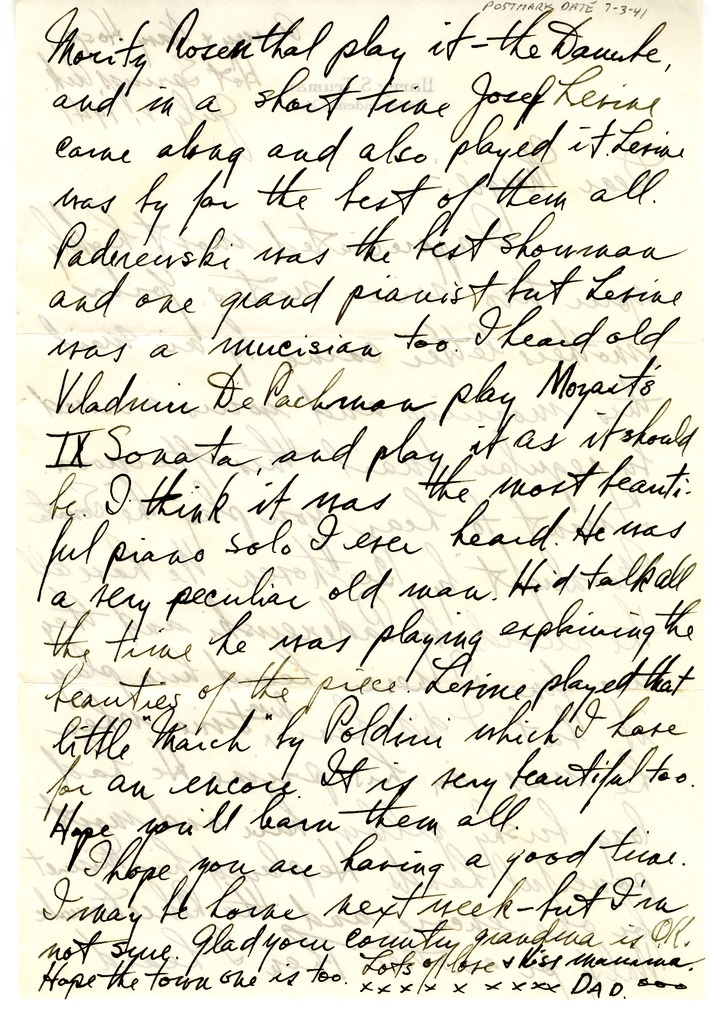 POSTMARK DATE 7-3-41
Mority Rosenthal play it - the Danube,
and in a short time Josef Levine
came along and also played it. Levine
was by far the best of them all.
Paderewski was the best showman
and one grand pianist but Levine
was a mucisian too. I heard old
Vladmin De Pachman play Mozart's
IX Sonata, and play it as it should
be. I think it was the most beauti-
ful piano solo I ever heard. He was
a very peculiar old man. He'd talk all
the time he was playing explaining the
beauties of the piece. Levine played that
little "March" by Poldini which I have
for an encore. It is very beautiful too.
Hope you'll learn them all.
I hope you are having a good time.
I may be home next week - but I'm
not sure. Glad your country grandma is O.K.
Hope the town one is too. Lots of love & kiss mamma.
x x x x x x x x x DAD. ooo